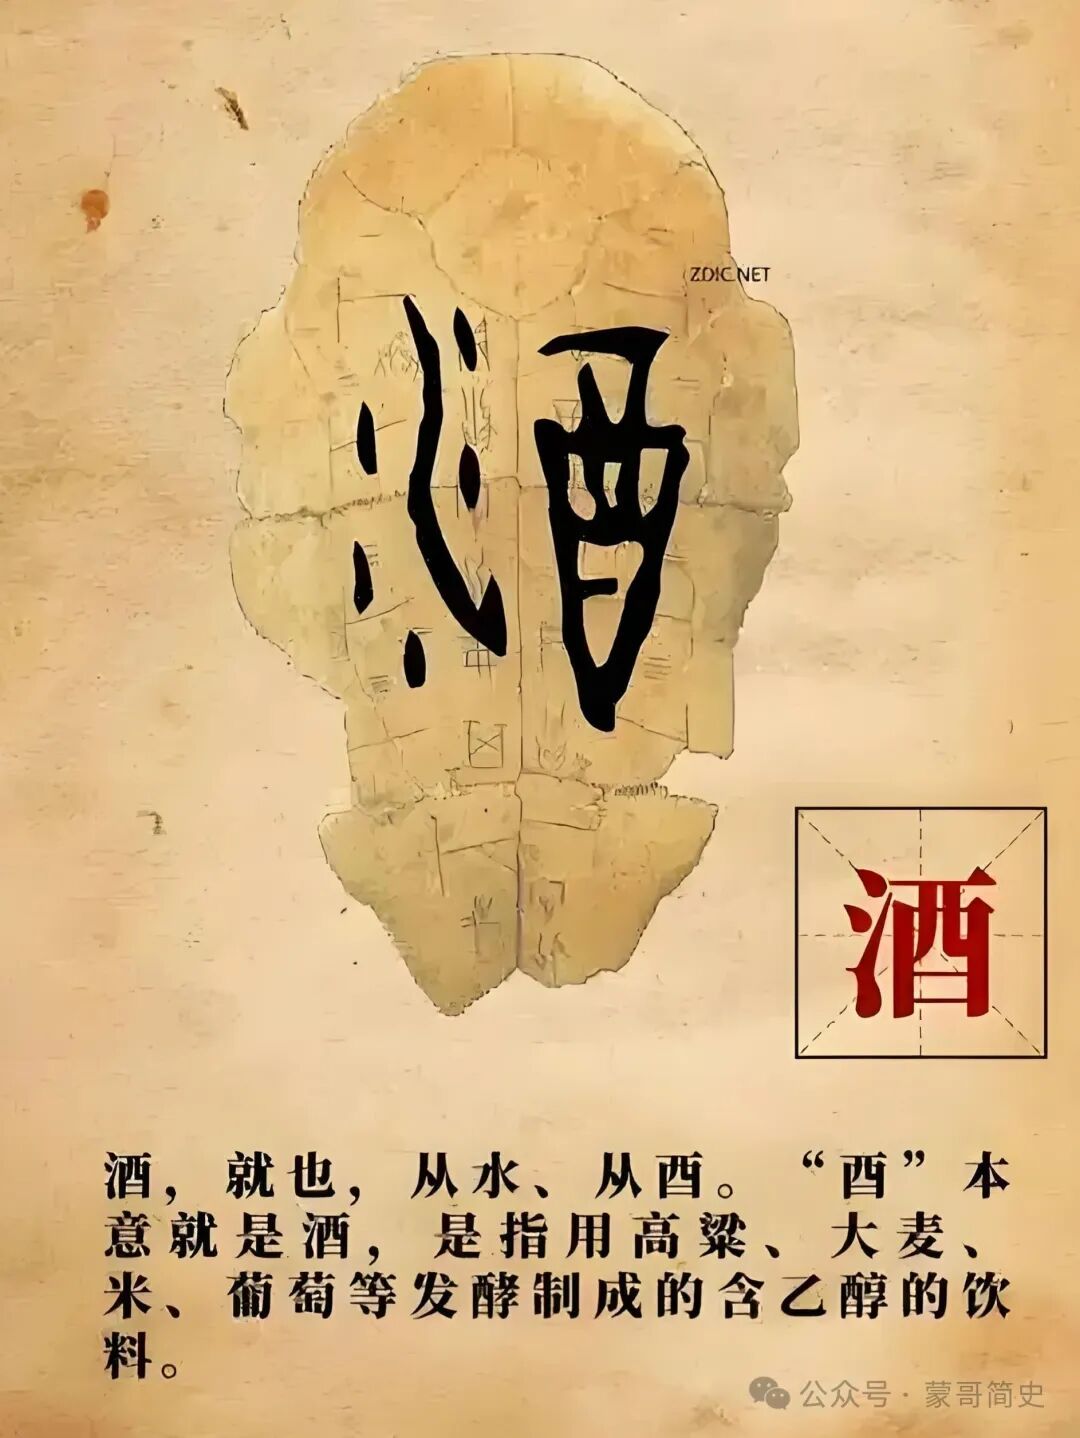 ZDIC.NET
酒
酒
酒，就也，从水、从酉。“酉”本
意就是酒，是指用高粱、大麦、
米、葡萄等发酵制成的含乙醇的饮
料。
公众号·蒙哥简史